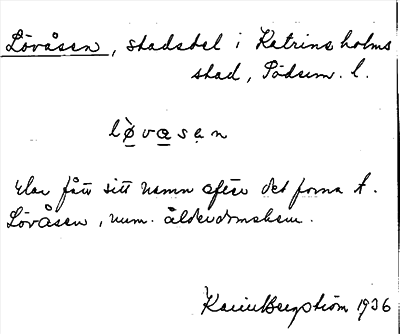 Lövåsen, stadsdel i Katrineholms
stad, Söderml. l.
lø̀våsen
Har fått sitt namn efter det forna t.
Lövåsen, num. ålderdomshem.
Karin Bergström 1936